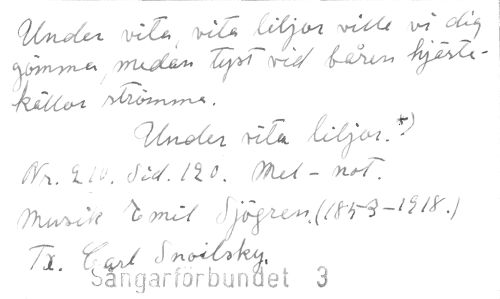 Under vita, vita liljor ville vi dig
gömma, medan tyst vid båren hjärte-
källor strömma.
Under vita liljor. *)
Nr. 210. Sid. 120. Mel-not.
Musik Emil Sjögren. (1853-1918.)
Tx. Carl Snoilsky.
Sångarförbundet 3